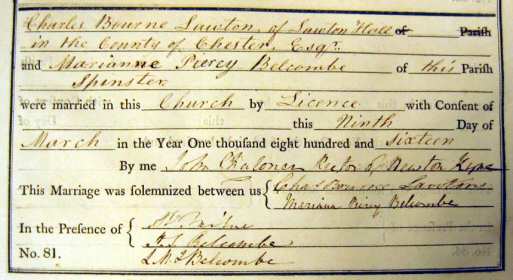 Charles Bourne Lawton, of Lawton Hall of Parish
in the County of Chester, Esqr.
and Marianne Percy Belcombe of this Parish
Spinster
were married in this Church by Licence with Consent of
this Ninth Day of
March in the Year One thousand eight hundred and sixteen
By me John Chaloner Rector of Newton Kyme
This Marriage was solemnized between us { Chas Bourne Lawton
Mariana Percy Belcombe
In the Presence of { Wm
Belcombe
No. 81. Belcombe